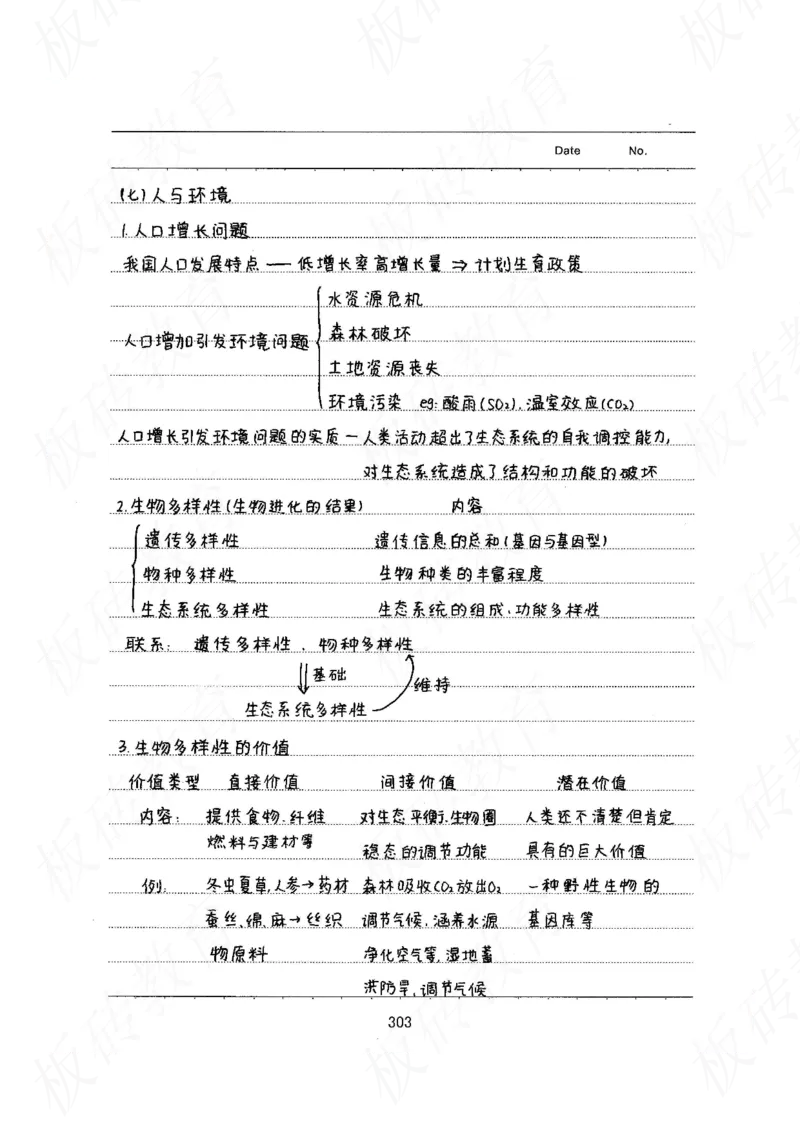 Date No.
(七)人与环境
1.人口增长问题
我国人口发展特点 — 低增长率高增长量 ⇒ 计划生育政策
水资源危机
人口增加引发环境问题 森林破坏
土地资源丧失
环境污染 eg:酸雨(SO₂),温室效应(CO₂)
人口增长引发环境问题的实质 — 人类活动超出了生态系统的自我调控能力,
对生态系统造成了结构和功能的破坏
2.生物多样性(生物进化的结果) 内容
遗传多样性 遗传信息的总和(基因与基因型)
物种多样性 生物种类的丰富程度
生态系统多样性 生态系统的组成、功能多样性
联系: 遗传多样性 、 物种多样性
基础
维持
生态系统多样性
3.生物多样性的价值
价值类型 直接价值 间接价值 潜在价值
内容: 提供食物、纤维 对生态平衡、生物圈 人类还不清楚但肯定
燃料与建材等 稳态的调节功能 具有的巨大价值
例: 冬虫夏草,人参→药材 森林吸收CO₂放出O₂ 一种野性生物的
蚕丝、绵、麻→丝织 调节气候,涵养水源 基因库等
物原料 净化空气等,湿地蓄
洪防旱,调节气候
303
板砖教育